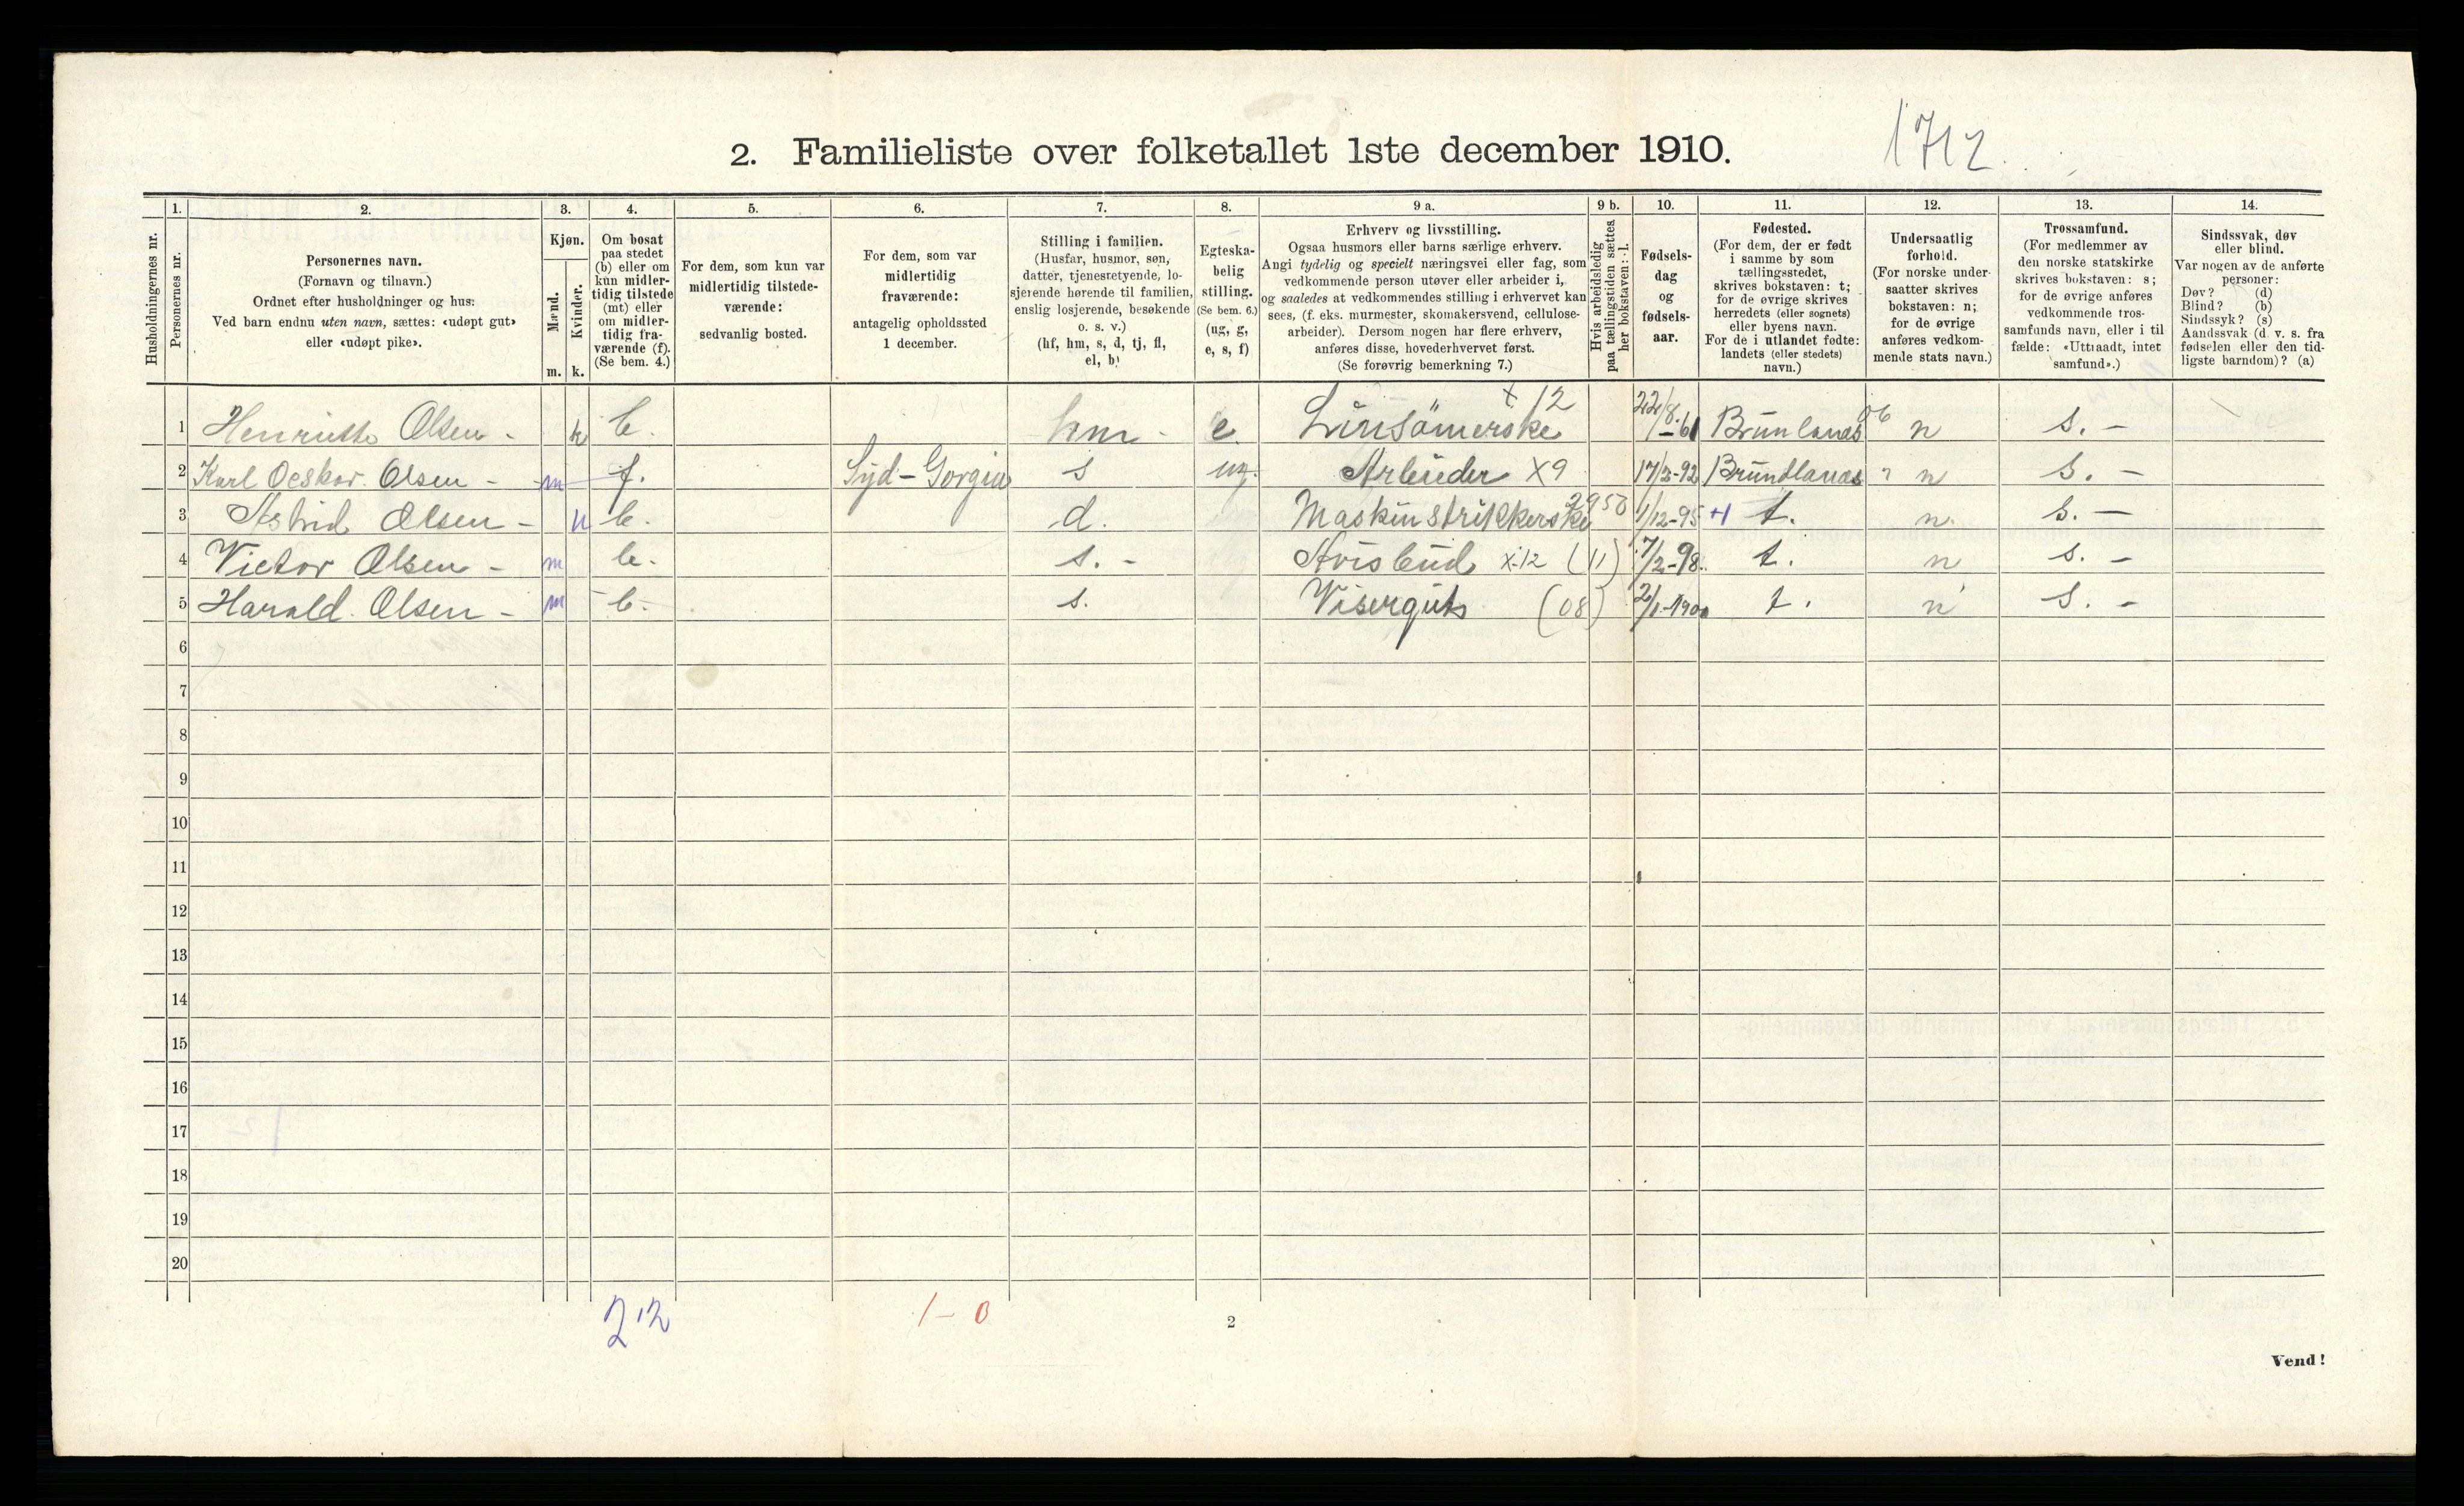 1712.
2. Familieliste over folketallet 1ste december 1910.
1. 2. 3. 4. 5. 6. 7. 8. 9 a. 9 b. 10. 11. 12. 13. 14.
Husholdningernes nr.
Personernes nr.
Personernes navn.
(Fornavn og tilnavn.)
Ordnet efter husholdninger og hus.
Ved barn endnu uten navn, sættes: «udøpt gut»
eller «udøpt pike».
Kjøn.
Mænd.
Kvinder.
m. k.
Om bosat
paa stedet
(b) eller om
kun midler-
tidig tilstede
(mt) eller
om midler-
tidig fra-
værende (f).
(Se bem. 4.)
For dem, som kun var
midlertidig tilstede-
værende:
sedvanlig bosted.
For dem, som var
midlertidig
fraværende:
antagelig opholdssted
1 december.
Stilling i familien.
(Husfar, husmor, søn,
datter, tjenestetyende, lo-
sjerende hørende til familien,
enslig losjerende, besøkende
o. s. v.)
(hf, hm, s, d, tj, fl,
el, b)
Egteska-
belig
stilling.
(Se bem. 6.)
(ug, g,
e, s, f)
Erhverv og livsstilling.
Ogsaa husmors eller barns særlige erhverv.
Angi tydelig og specielt næringsvei eller fag, som
vedkommende person utøver eller arbeider i,
og saaledes at vedkommendes stilling i erhvervet kan
sees, (f. eks. murmester, skomakersvend, cellulose-
arbeider). Dersom nogen har flere erhverv,
anføres disse, hovederhvervet først.
(Se forøvrig bemerkning 7.)
Hvis arbeidsledig
paa tællingstiden sættes
her bokstaven: l.
Fødsels-
dag
og
fødsels-
aar.
Fødested.
(For dem, der er født
i samme by som
tællingsstedet,
skrives bokstaven: t;
for de øvrige skrives
herredets (eller sognets)
eller byens navn.
For de i utlandet fødte:
landets (eller stedets)
navn.)
Undersaatlig
forhold.
(For norske under-
saatter skrives
bokstaven: n;
for de øvrige
anføres vedkom-
mende stats navn.)
Trossamfund.
(For medlemmer av
den norske statskirke
skrives bokstaven: s;
for de øvrige anføres
vedkommende tros-
samfunds navn, eller i til
fælde: «Uttraadt, intet
samfund».)
Sindssvak, døv
eller blind.
Var nogen av de anførte
personer:
Døv? (d)
Blind? (b)
Sindssyk? (s)
Aandssvak (d. v. s. fra
fødselen eller den tid-
ligste barndom)? (a)
1 Henriette Olsen - k b. hm - e. Linsömerske x 12 22/8-61 Brunlanæs 06 n s. -
2 Karl Oeskar Olsen - m f. Syd-Gorgia s ug. Arbeider X9 17/3-92 Brundlanæs " n s. -
3 Astrid Olsen - k b. d. Maskinstrikkerske 2950 1/12-95 +1 t. n. s. -
4 Victor Olsen - m b. s. - Avisbud x12 (11) 7/2-98. t. n s. -
5 Harald Olsen - m b. s. Visergut (08) 2/1-1900 t. n s. -
6
7
8
9
10
11
12
13
14
15
16
17
18
19
20
1 - 0
2
Vend!